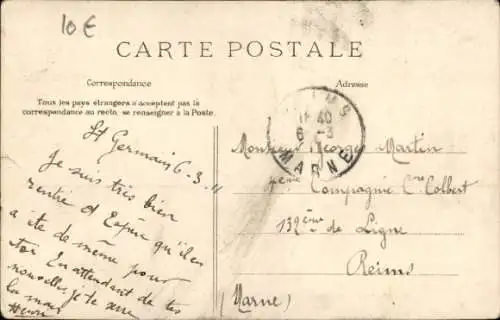 10 €
CARTE POSTALE
Correspondance
Adresse
Tous les pays étrangers n'acceptent pas la
correspondance au recto, se renseigner à la Poste.
St Germain 6-3-11
Je suis très bien
rentré et Espère qu'il en
a été de même pour
toi En attendant de tes
nouvelles, je te serre
la main
Henri
11 40
6 -3
MARNE
Monsieur Georges Martin
Compagnie Cne Colbert
132ème de Ligne
Reims
(Marne)